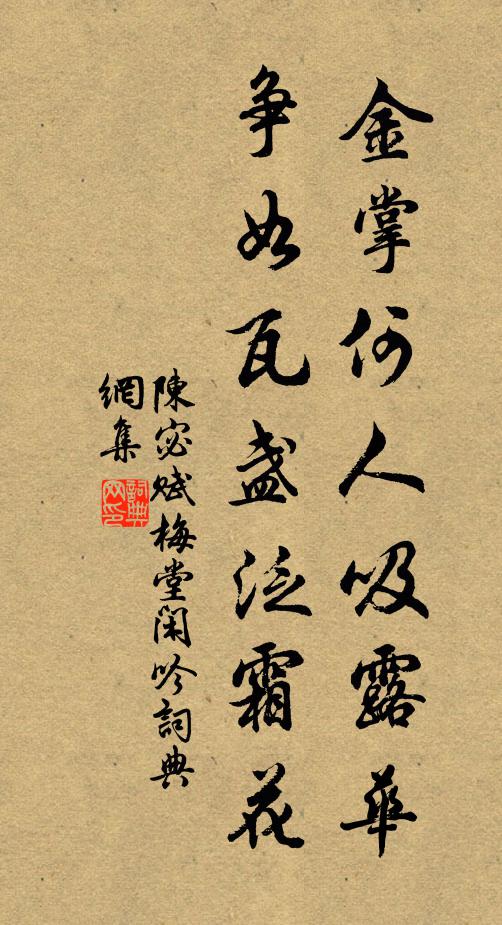 金掌何人吸露華
争如瓦盏泛霜花
陳宓賦梅堂閑吟詞典
網集
詞典
网印